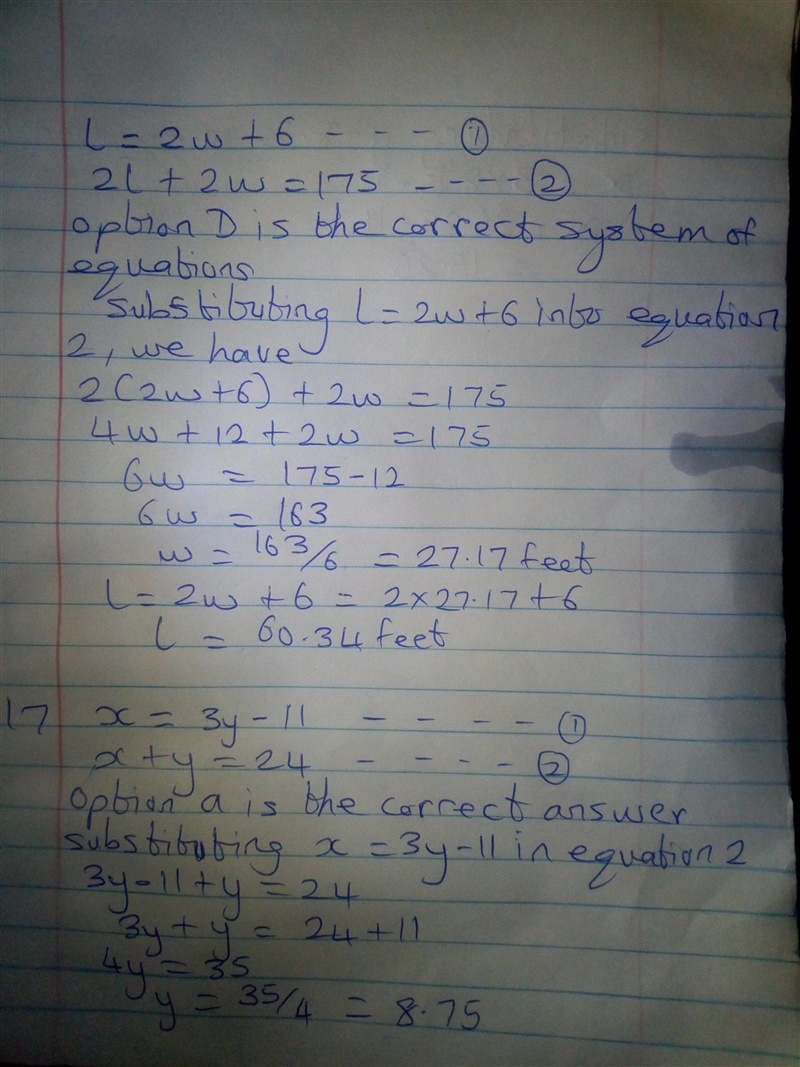 L = 2w + 6 - - - - ①
2L + 2w = 175 - - - - ②
option D is the correct system of
equations
substituting L = 2w+6 into equation
2, we have
2(2w+6) + 2w = 175
4w + 12 + 2w = 175
6w = 175-12
6w = 163
w = 163/6 = 27.17 feet
L = 2w + 6 = 2×27.17+6
L = 60.34 feet
17 x = 3y - 11 - - - - ①
x + y = 24 - - - - ②
option a is the correct answer
substituting x = 3y-11 in equation 2
3y-11+y = 24
3y + y = 24 + 11
4y = 35
y = 35/4 = 8.75